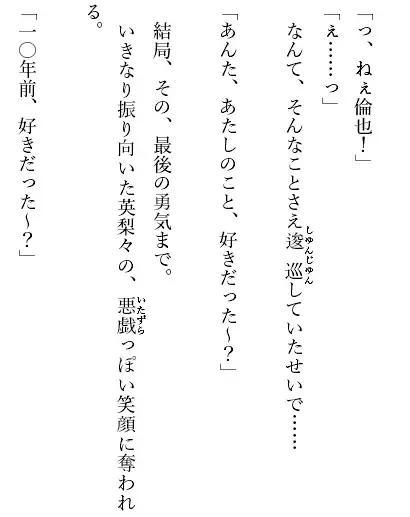 「っ、ねぇ倫也！」
「ぇ……っ」
なんて、そんなことさえ逡巡していたせいで……
「あんた、あたしのこと、好きだった～？」
結局、その、最後の勇気まで。
いきなり振り向いた英梨々の、悪戯っぽい笑顔に奪われ
る。
「一〇年前、好きだった～？」